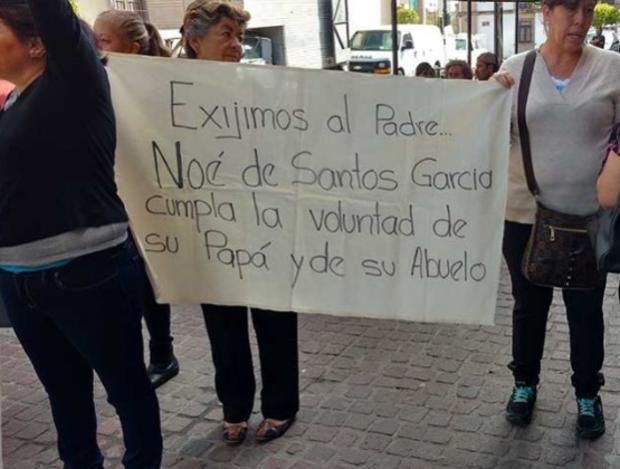 Exijimos al Padre...
Noé de Santos Garcia
cumpla la voluntad de
su Papá y de su Abuelo